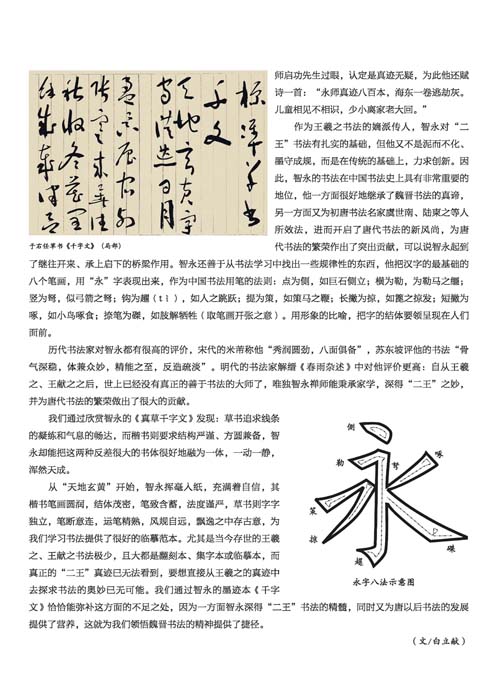 标准草书
千文
天地玄黄宇
宙洪荒日月
盈昃辰宿列
张寒来暑往
秋收冬藏闰
余成岁律
于右任草书《千字文》（局部）
师启功先生过眼，认定是真迹无疑，为此他还赋
诗一首：“永师真迹八百本，海东一卷逃劫灰。
儿童相见不相识，少小离家老大回。”
作为王羲之书法的嫡派传人，智永对“二
王”书法有扎实的基础，但他又不是泥而不化、
墨守成规，而是在传统的基础上，力求创新。因
此，智永的书法在中国书法史上具有非常重要的
地位，他一方面很好地继承了魏晋书法的真谛，
另一方面又为初唐书法名家虞世南、陆柬之等人
所效法，进而开启了唐代书法的新风尚，为唐
代书法的繁荣作出了突出贡献，可以说智永起到
了继往开来、承上启下的桥梁作用。智永还善于从书法学习中找出一些规律性的东西，他把汉字的最基础的
八个笔画，用“永”字表现出来，作为中国书法用笔的法则：点为侧，如巨石侧立；横为勒，为勒马之缰；
竖为弩，似弓箭之弩；钩为趯（tì），如人之跳跃；提为策，如策马之鞭；长撇为掠，如篦之掠发；短撇为
啄，如小鸟啄食；捺笔为磔，如肢解牺牲（取笔画开张之意）。用形象的比喻，把字的结体要领呈现在人们
面前。
历代书法家对智永都有很高的评价，宋代的米芾称他“秀润圆劲，八面俱备”，苏东坡评他的书法“骨
气深稳，体兼众妙，精能之至，反造疏淡”。明代的书法家解缙《春雨杂述》中对他评价更高：自从王羲
之、王献之之后，世上已经没有真正的善于书法的大师了，唯独智永禅师能秉承家学，深得“二王”之妙，
并为唐代书法的繁荣做出了很大的贡献。
我们通过欣赏智永的《真草千字文》发现：草书追求线条
的凝练和气息的畅达，而楷书则要求结构严谨、方圆兼备，智
永却能把这两种反差很大的书体很好地融为一体，一动一静，
浑然天成。
从“天地玄黄”开始，智永挥毫入纸，充满着自信，其
楷书笔画圆润，结体茂密，笔致含蓄，法度谨严，草书则字字
独立，笔断意连，运笔精熟，风规自远，飘逸之中存古意，为
我们学习书法提供了很好的临摹范本。尤其是当今存世的王羲
之、王献之书法极少，且大都是翻刻本、集字本或临摹本，而
真正的“二王”真迹已无法看到，要想直接从王羲之的真迹中
去探求书法的奥妙已无可能。我们通过智永的墨迹本《千字
文》恰恰能弥补这方面的不足之处，因为一方面智永深得“二王”书法的精髓，同时又为唐以后书法的发展
提供了营养，这就为我们领悟魏晋书法的精神提供了捷径。
側
勒
弩
啄
策
掠
磔
趯
永
永字八法示意图
（文/白立献）